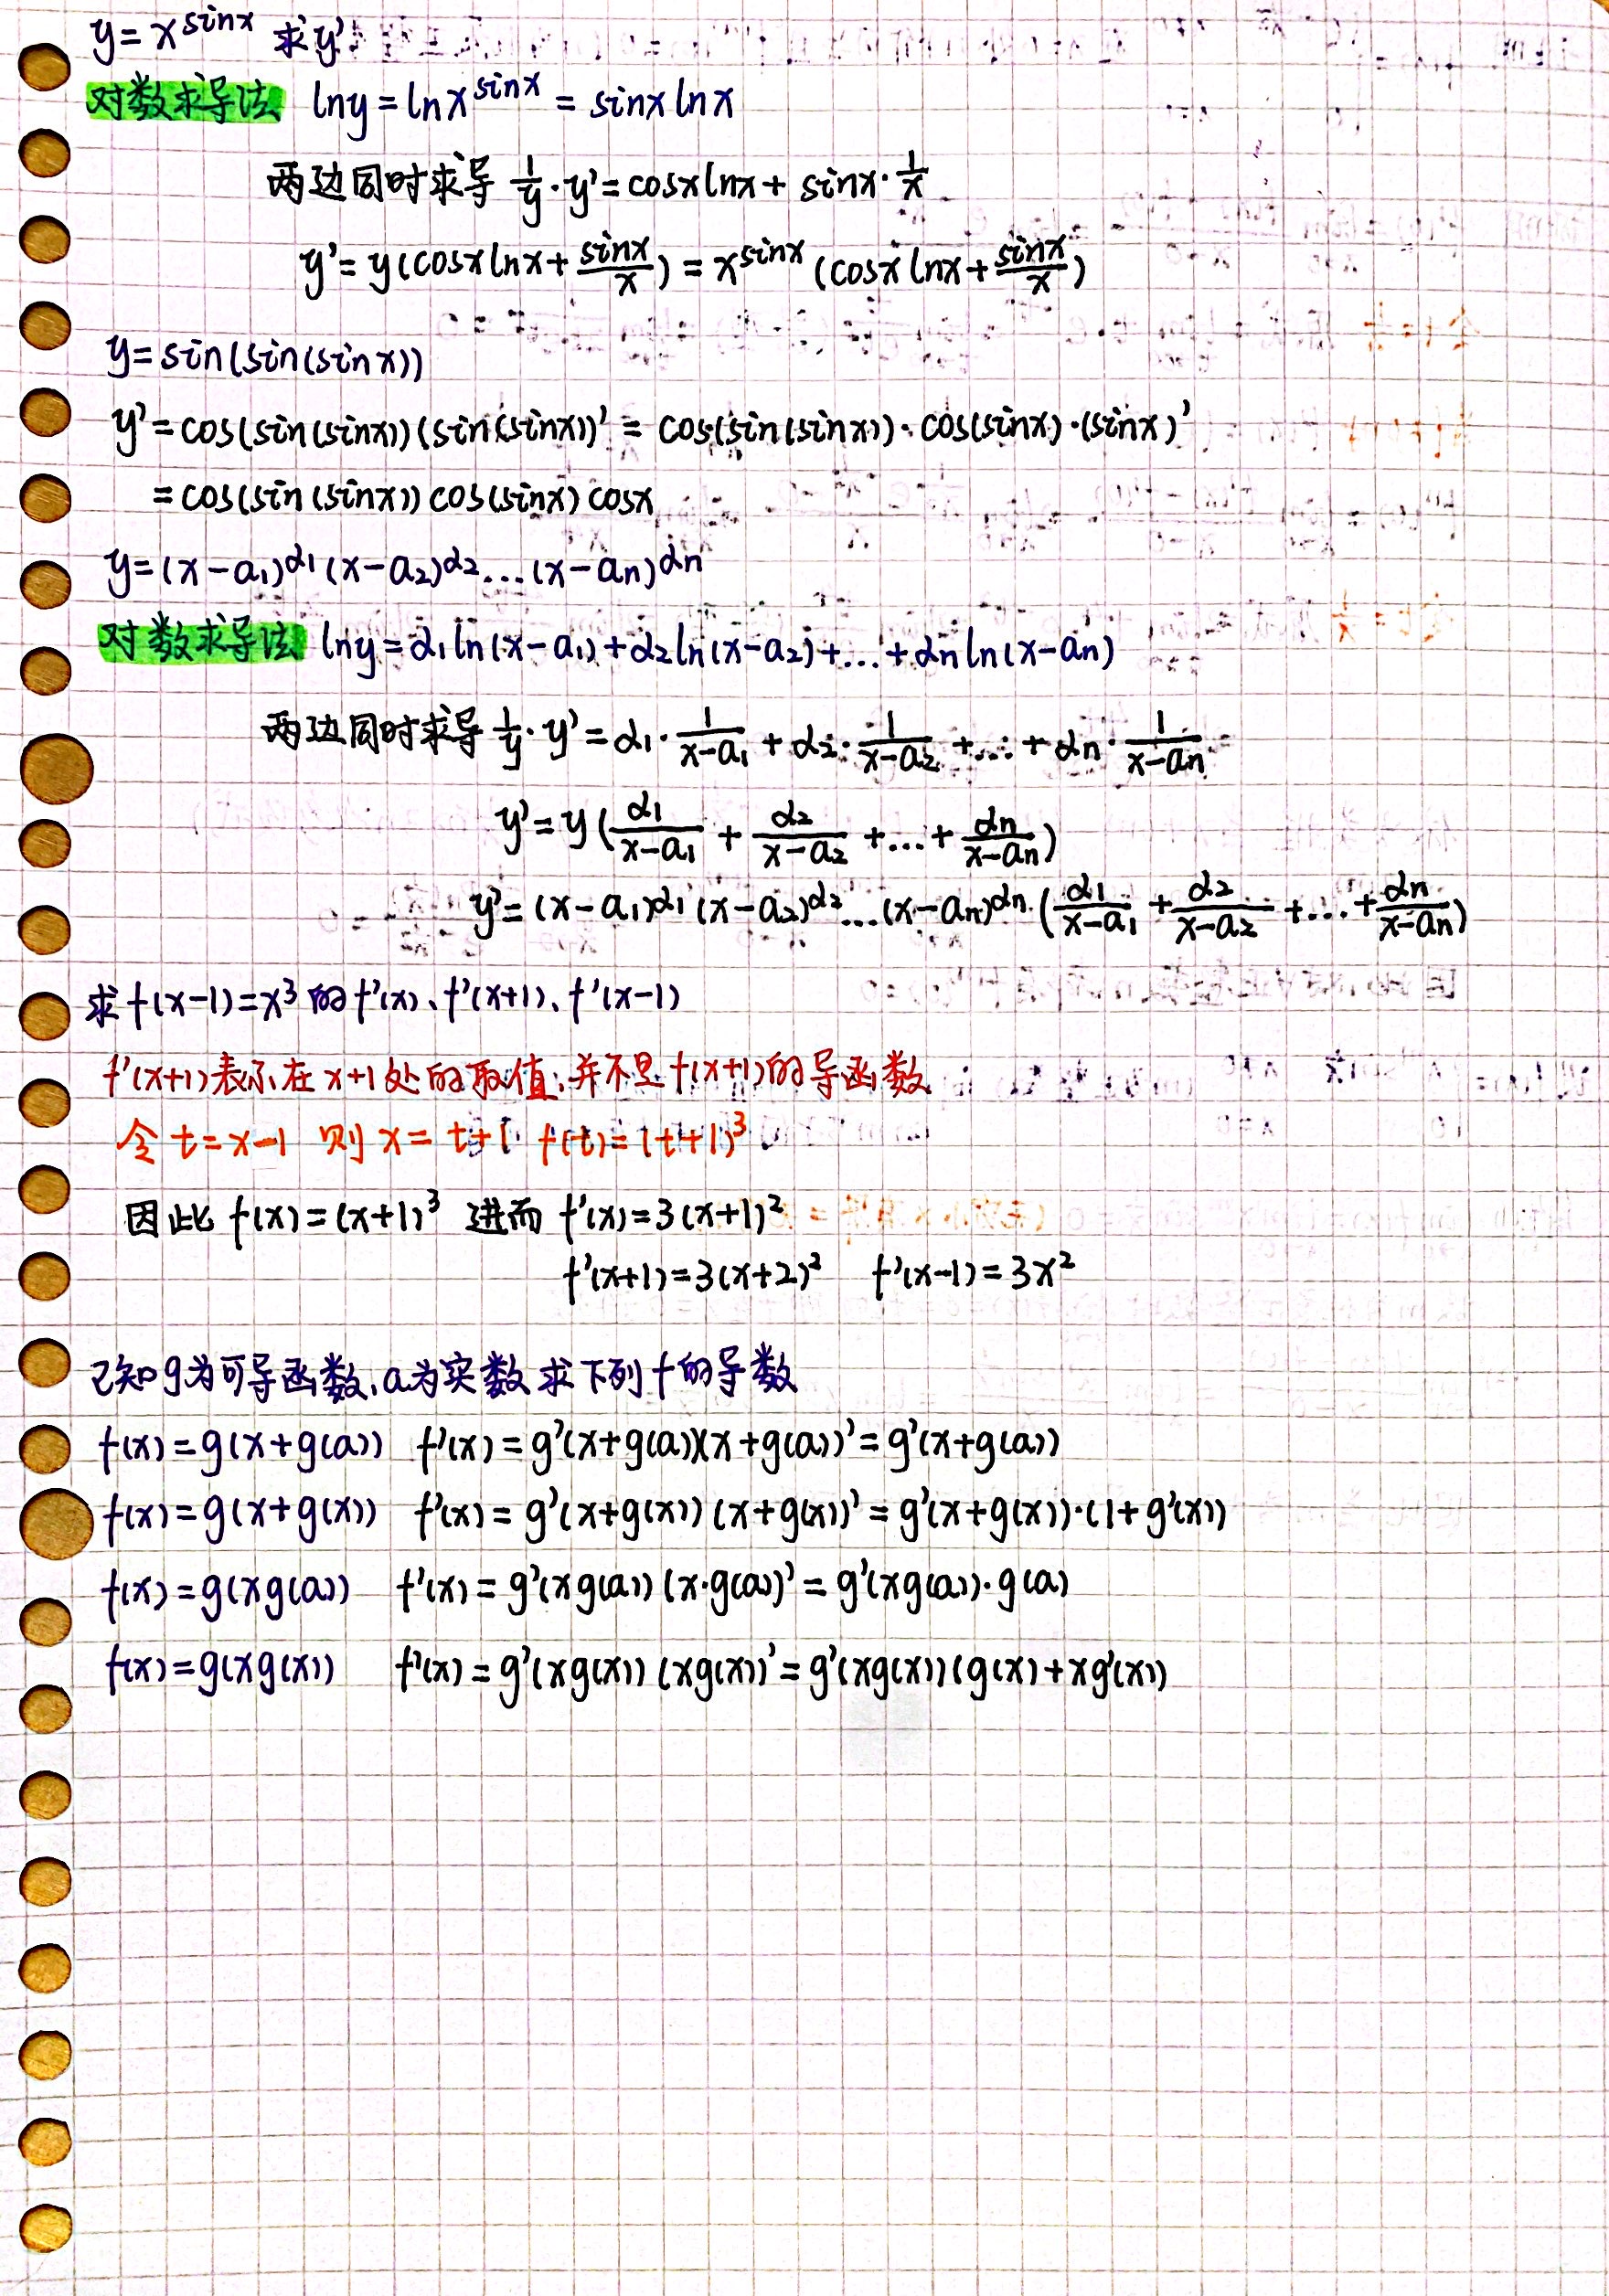 y=x^sinx 求y'
对数求导法 lny=lnx^sinx=sinxlnx
两边同时求导 1/y·y'=cosxlnx+sinx·1/x
y'=y(cosxlnx+sinx/x)=x^sinx(cosxlnx+sinx/x)
y=sin(sin(sinx))
y'=cos(sin(sinx))(sin(sinx))'=cos(sin(sinx))·cos(sinx)·(sinx)'
=cos(sin(sinx))cos(sinx)cosx
y=(x-a₁)^α₁(x-a₂)^α₂...(x-aₙ)^αₙ
对数求导法 lny=α₁ln(x-a₁)+α₂ln(x-a₂)+...+αₙln(x-aₙ)
两边同时求导 1/y·y'=α₁·1/(x-a₁)+α₂·1/(x-a₂)+...+αₙ·1/(x-aₙ)
y'=y(α₁/(x-a₁)+α₂/(x-a₂)+...+αₙ/(x-aₙ))
y'=(x-a₁)^α₁(x-a₂)^α₂...(x-aₙ)^αₙ(α₁/(x-a₁)+α₂/(x-a₂)+...+αₙ/(x-aₙ))
求f(x-1)=x³的f'(x)、f'(x+1)、f'(x-1)
f'(x+1)表示在x+1处的取值,并不是f(x+1)的导函数
令t=x-1 则x=t+1 f(t)=(t+1)³
因此f(x)=(x+1)³ 进而f'(x)=3(x+1)²
f'(x+1)=3(x+2)² f'(x-1)=3x²
已知g为可导函数,a为实数求下列f的导数
f(x)=g(x+g(a)) f'(x)=g'(x+g(a))(x+g(a))'=g'(x+g(a))
f(x)=g(x+g(x)) f'(x)=g'(x+g(x))(x+g(x))'=g'(x+g(x))·(1+g'(x))
f(x)=g(xg(a)) f'(x)=g'(xg(a))(x·g(a))'=g'(xg(a))·g(a)
f(x)=g(xg(x)) f'(x)=g'(xg(x))(xg(x))'=g'(xg(x))(g(x)+xg'(x))